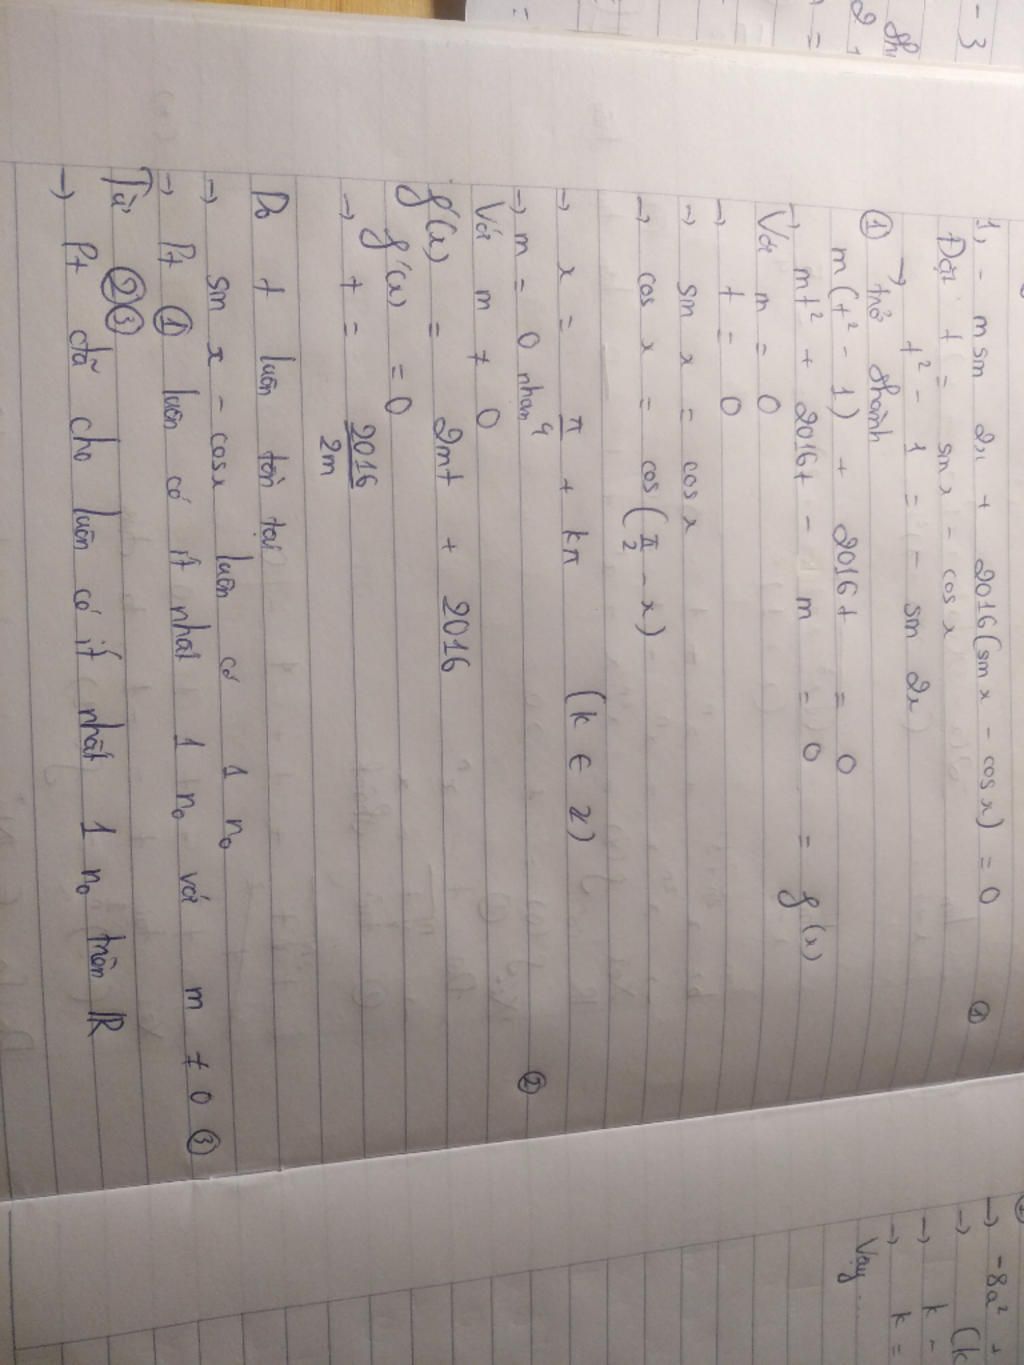 1, - m sin 2x + 2016(sin x - cos x) = 0 ①
Đặt t = sin x - cos x
→ t² - 1 = - sin 2x
① trở thành
m(t² - 1) + 2016t = 0
→ mt² + 2016t - m = 0 = f(x)
Với m = 0
→ t = 0
→ sin x = cos x
→ cos x = cos(π/2 - x)
→ x = π/4 + kπ (k ∈ Z)
→ m = 0 nhận ②
Với m ≠ 0
f'(x) = 2mt + 2016
f'(x) = 0
→ t = 2016/2m
Do t luôn tồn tại
→ sin x - cos x luôn có 1 n₀
→ Pt ① luôn có ít nhất 1 n₀ với m ≠ 0 ③
Từ ②③
→ Pt đã cho luôn có ít nhất 1 n₀ trên ℝ
- 3
→ -8a² +
→ (k
→ k -
→ k =
Vậy ...